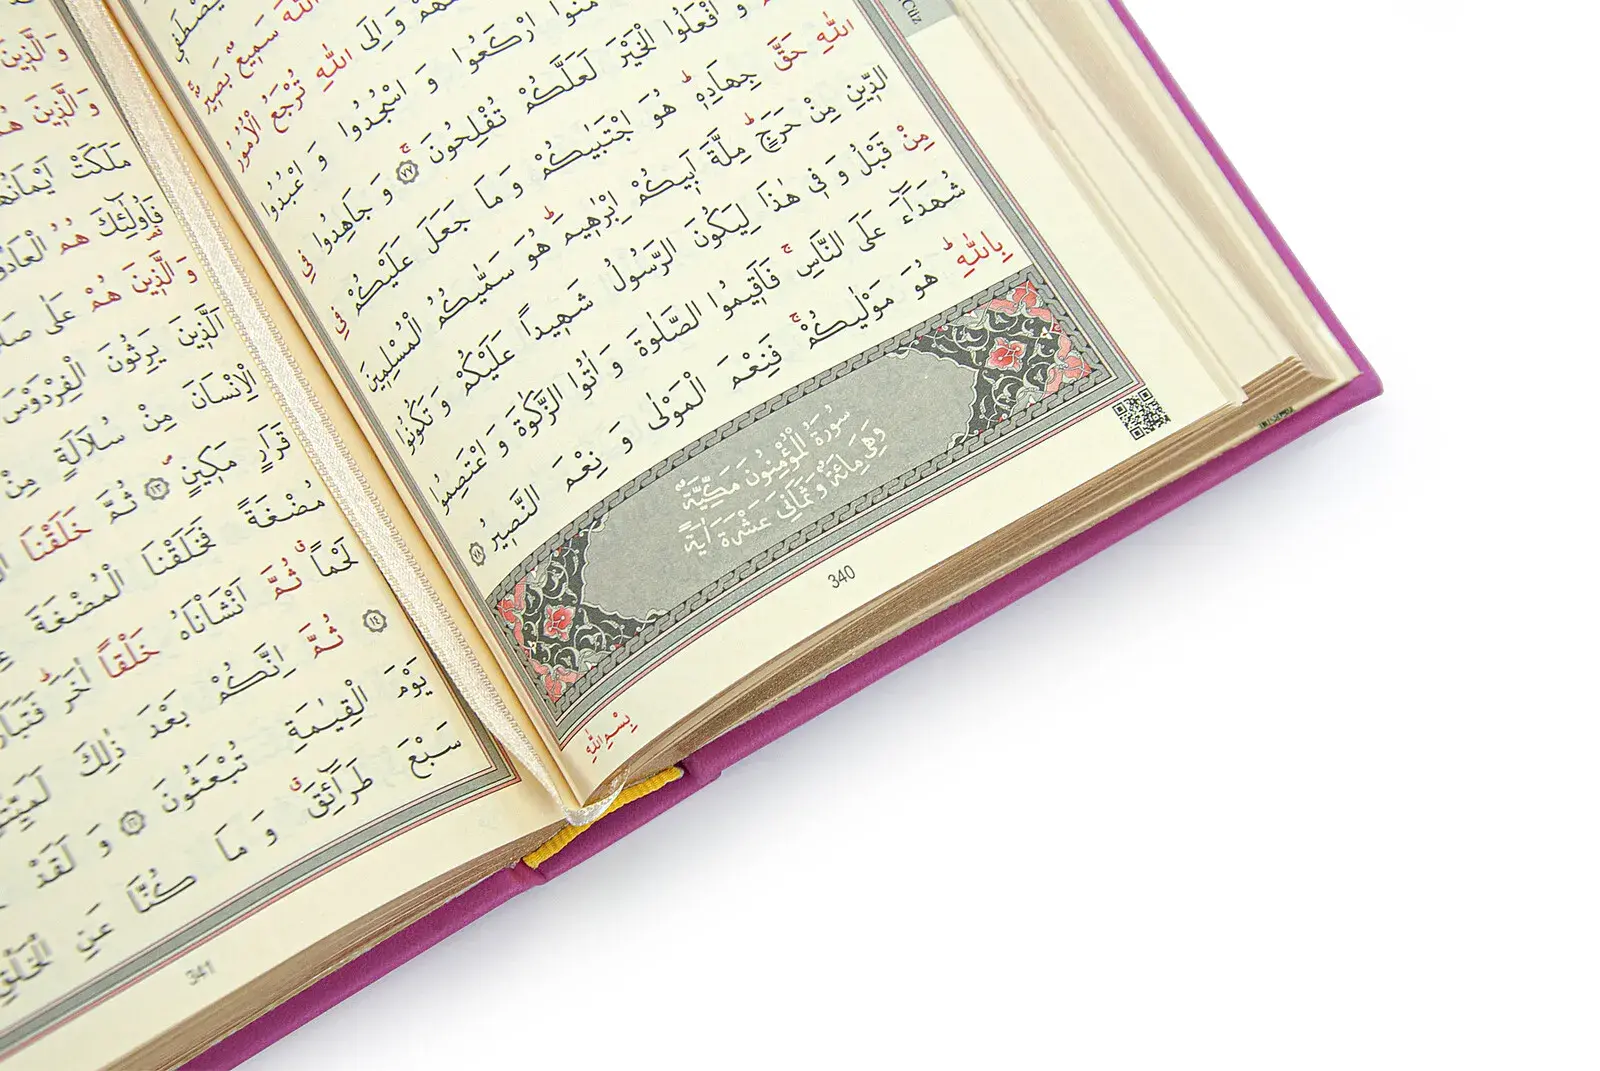 يَصْطَفٖي
اللّٰهَ سَمٖيعٌ بَصٖيرٌ
وَ اِلَى اللّٰهِ تُرْجَعُ الْاُمُورُ
ارْكَعُوا وَ اسْجُدُوا وَ اعْبُدُوا
وَ افْعَلُوا الْخَيْرَ لَعَلَّكُمْ تُفْلِحُونَ ٧٧ وَ جَاهِدُوا فِي
اللّٰهِ حَقَّ جِهَادِهٖ هُوَ اجْتَبٰيكُمْ وَ مَا جَعَلَ عَلَيْكُمْ فِي
الدّٖينِ مِنْ حَرَجٍ مِلَّةَ اَبٖيكُمْ اِبْرٰهٖيمَ هُوَ سَمّٰيكُمُ الْمُسْلِمٖينَ
مِنْ قَبْلُ وَ فٖي هٰذَا لِيَكُونَ الرَّسُولُ شَهٖيداً عَلَيْكُمْ وَ تَكُونُوا
شُهَدَٓاءَ عَلَى النَّاسِ فَاَقٖيمُوا الصَّلٰوةَ وَ اٰتُوا الزَّكٰوةَ وَ اعْتَصِمُوا
بِاللّٰهِ هُوَ مَوْلٰيكُمْ فَنِعْمَ الْمَوْلٰى وَ نِعْمَ النَّصٖيرُ ٧٨
سُورَةُ الْمُؤْمِنُونَ مَكِّيَّةٌ
وَهِيَ مِائَةٌ وَثَمَانِي عَشْرَةَ اٰيَةً
340
بِسْمِ اللّٰهِ
وَ الَّذٖينَ
وَ الَّذٖينَ هُمْ
مَلَكَتْ
فَاُولٰٓئِكَ هُمُ
وَ الَّذٖينَ هُمْ عَلٰى
اَلَّذٖينَ يَرِثُونَ الْفِرْدَوْسَ
الْاِنْسَانَ مِنْ سُلَالَةٍ مِنْ
قَرَارٍ مَكٖينٍ ١٣ ثُمَّ خَلَقْنَا
مُضْغَةً فَخَلَقْنَا الْمُضْغَةَ
لَحْماً ثُمَّ اَنْشَاْنَاهُ خَلْقاً اٰخَرَ
١٤ ثُمَّ اِنَّكُمْ بَعْدَ ذٰلِكَ
يَوْمَ الْقِيٰمَةِ تُبْعَثُونَ ١٦ وَ لَقَدْ
سَبْعَ طَرَٓائِقَ وَ مَا كُنَّا عَنِ الْخَلْقِ
341